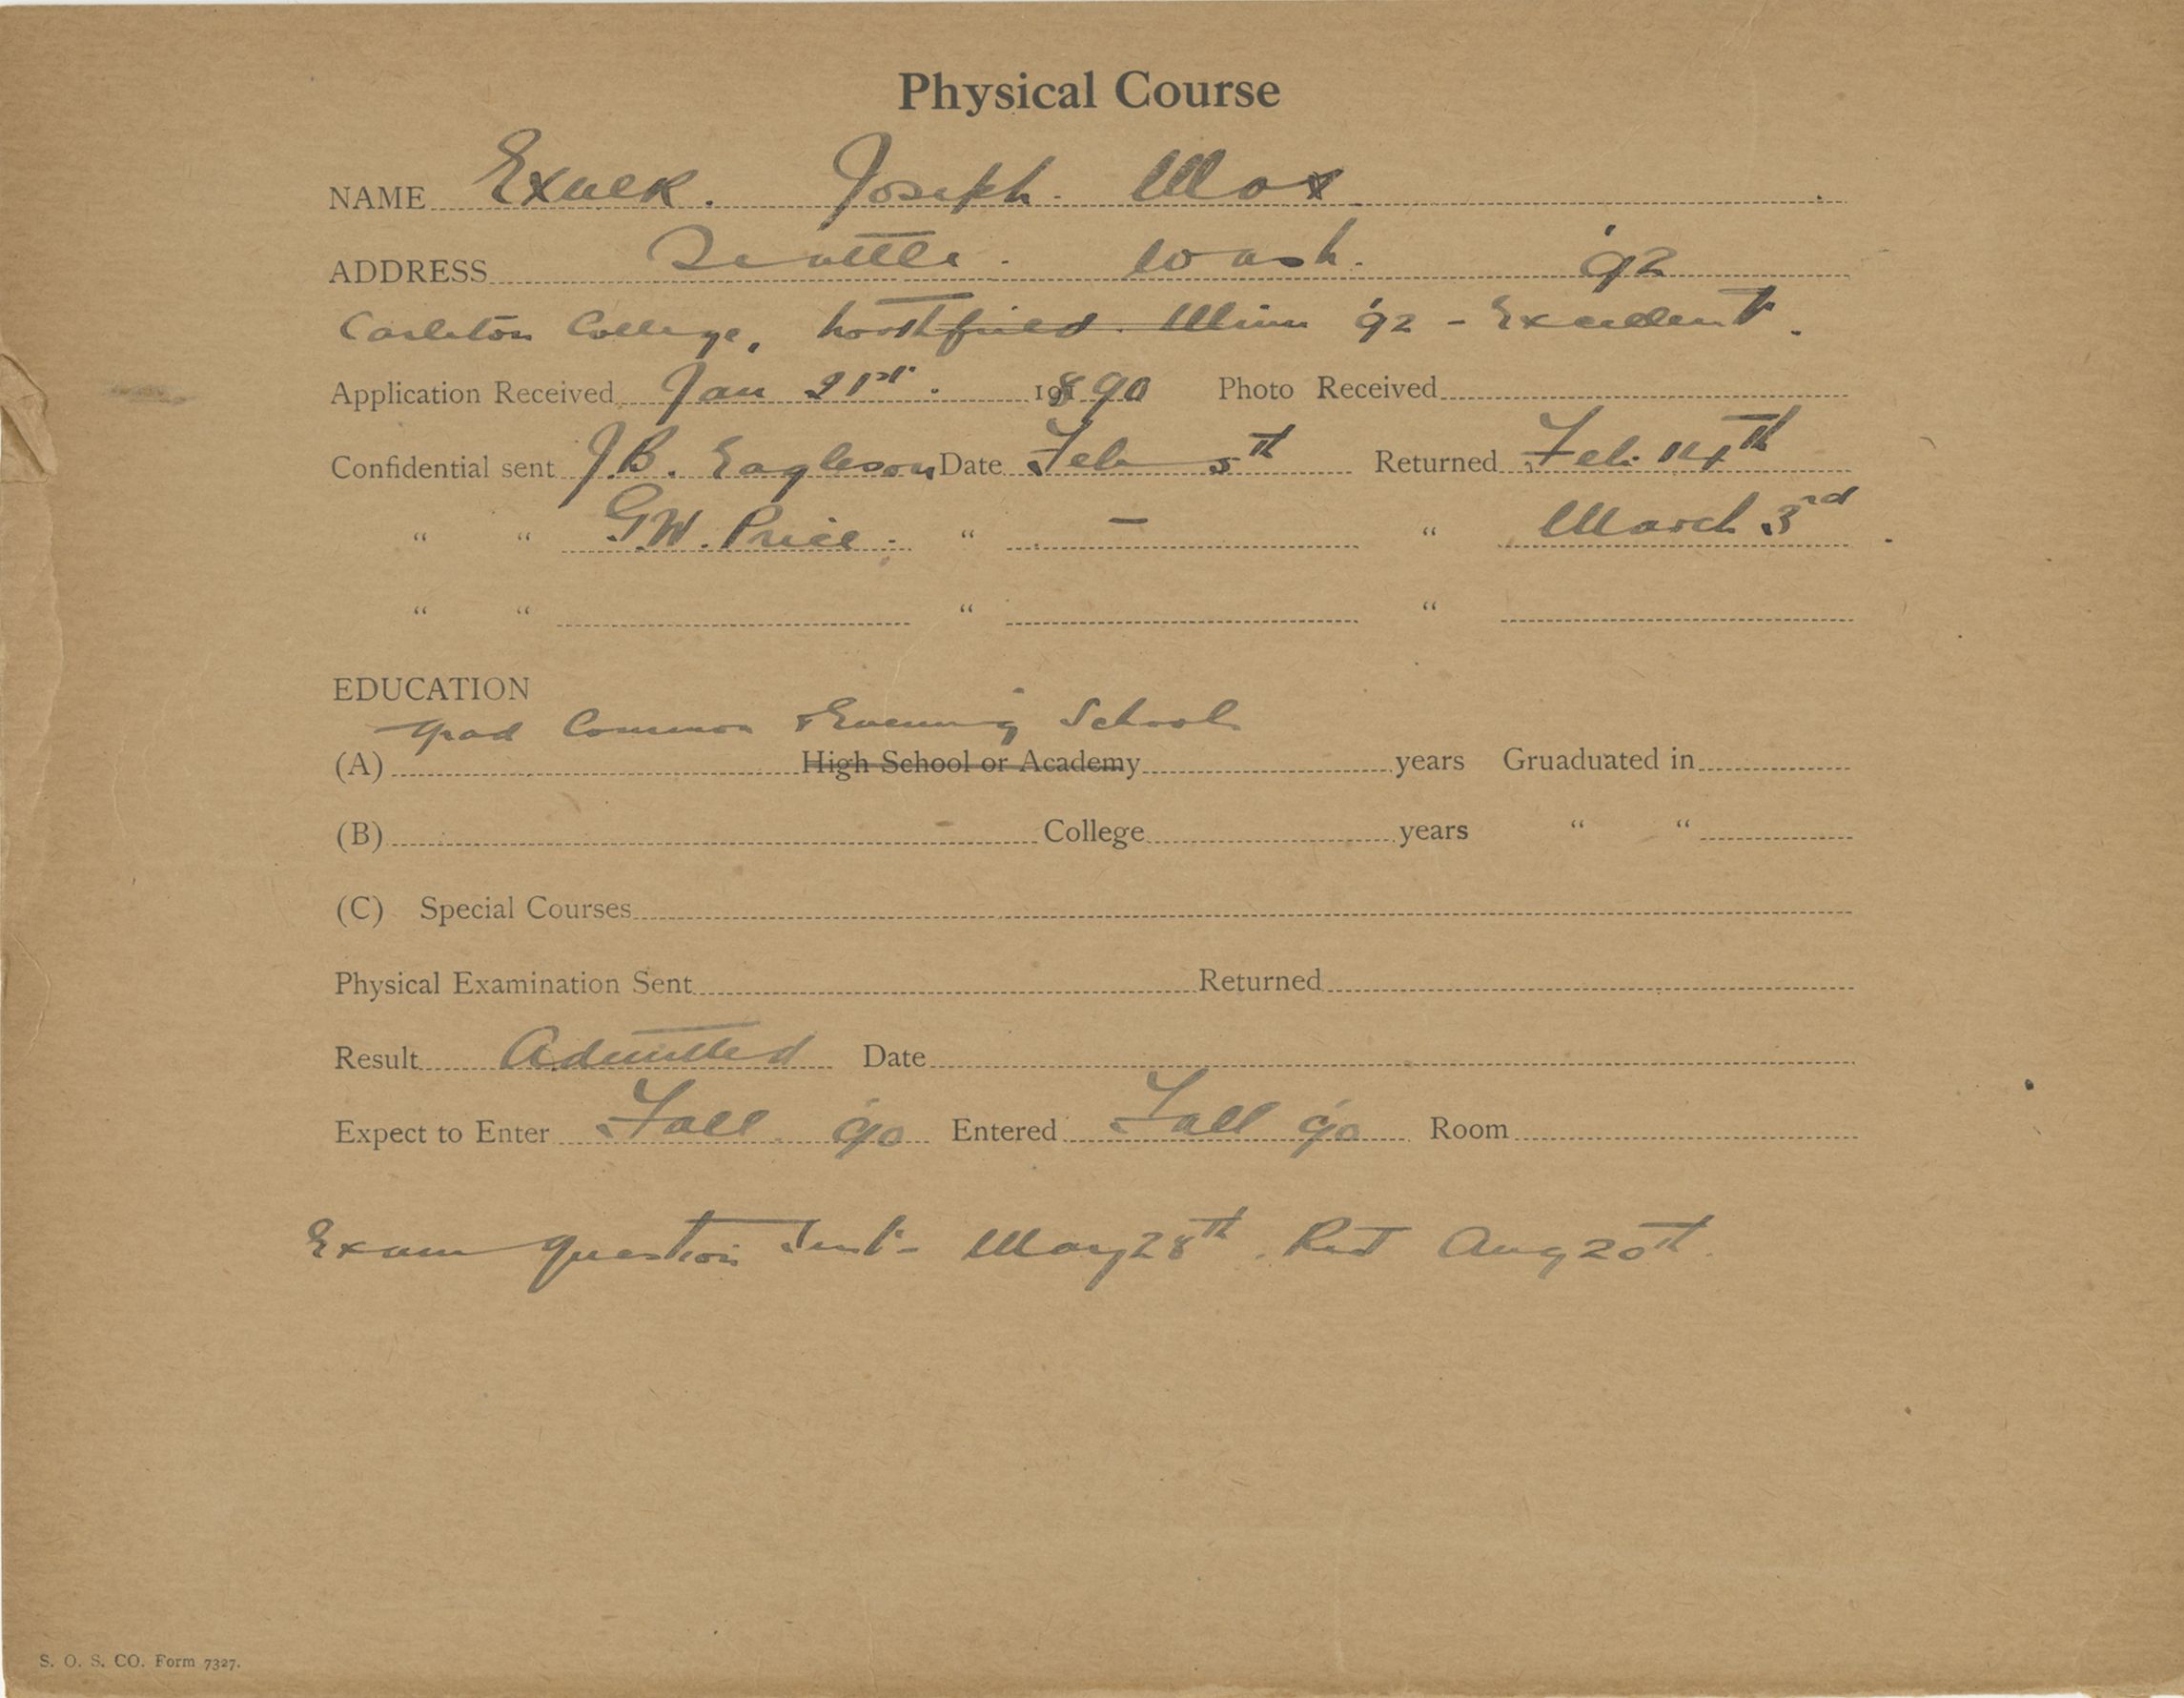 Physical Course
NAME Exner. Joseph Max
ADDRESS Seattle. Wash. '92
Carleton College, Northfield. Minn '92 - Excellent.
Application Received Jan 21st. 1890 Photo Received
Confidential sent J.B. Eagleson Date Feb 5th Returned Feb. 14th
“ “ G.W. Price. “ — “ March 3rd
“ “ “ “
EDUCATION
Grad Common & Evening School
(A) High School or Academy years Gruaduated in
(B) College years “ “
(C) Special Courses
Physical Examination Sent Returned
Result Admitted Date
Expect to Enter Fall '90 Entered Fall '90 Room
Exam question sent - May 28th. Ret Aug 20th.
S. O. S. CO. Form 7327.